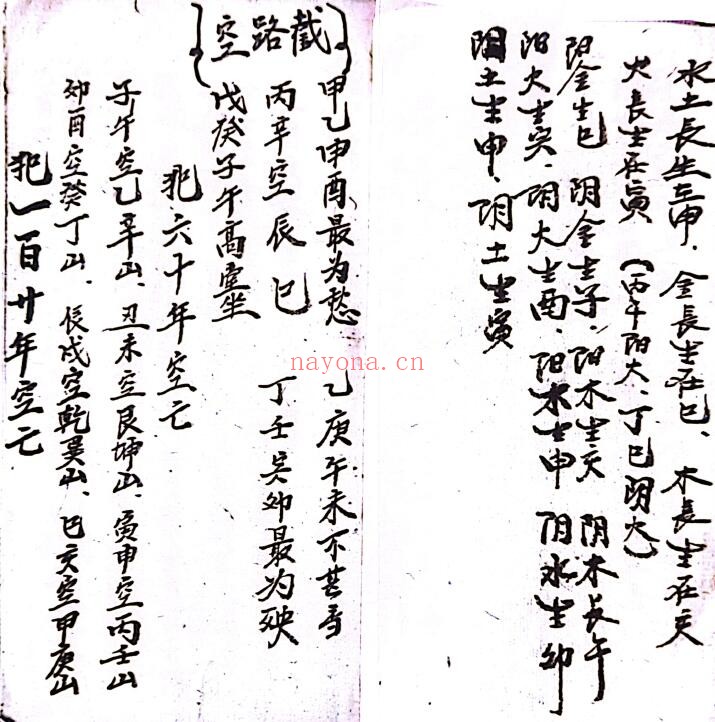 水土長生在申、金長生在巳、木長生在亥
火長生在寅（丙午阳火、丁巳阴火）
阳金生巳 阴金生子、阳木生亥 阴木長午
阳火生寅、阴火生酉、阳水生申 阴水生卯
阳土生申、阴土生寅
截路空
甲乙申酉最为愁 乙庚午未不甚
丙辛空辰巳 丁壬寅卯最为殃
戊癸子午高堂坐
犯六十年空亡
子午空乙辛山、丑未空艮坤山、寅申空丙壬山
卯酉空癸丁山、辰戌空乾巽山、巳亥空甲庚山
犯一百廿年空亡
nayona.cn